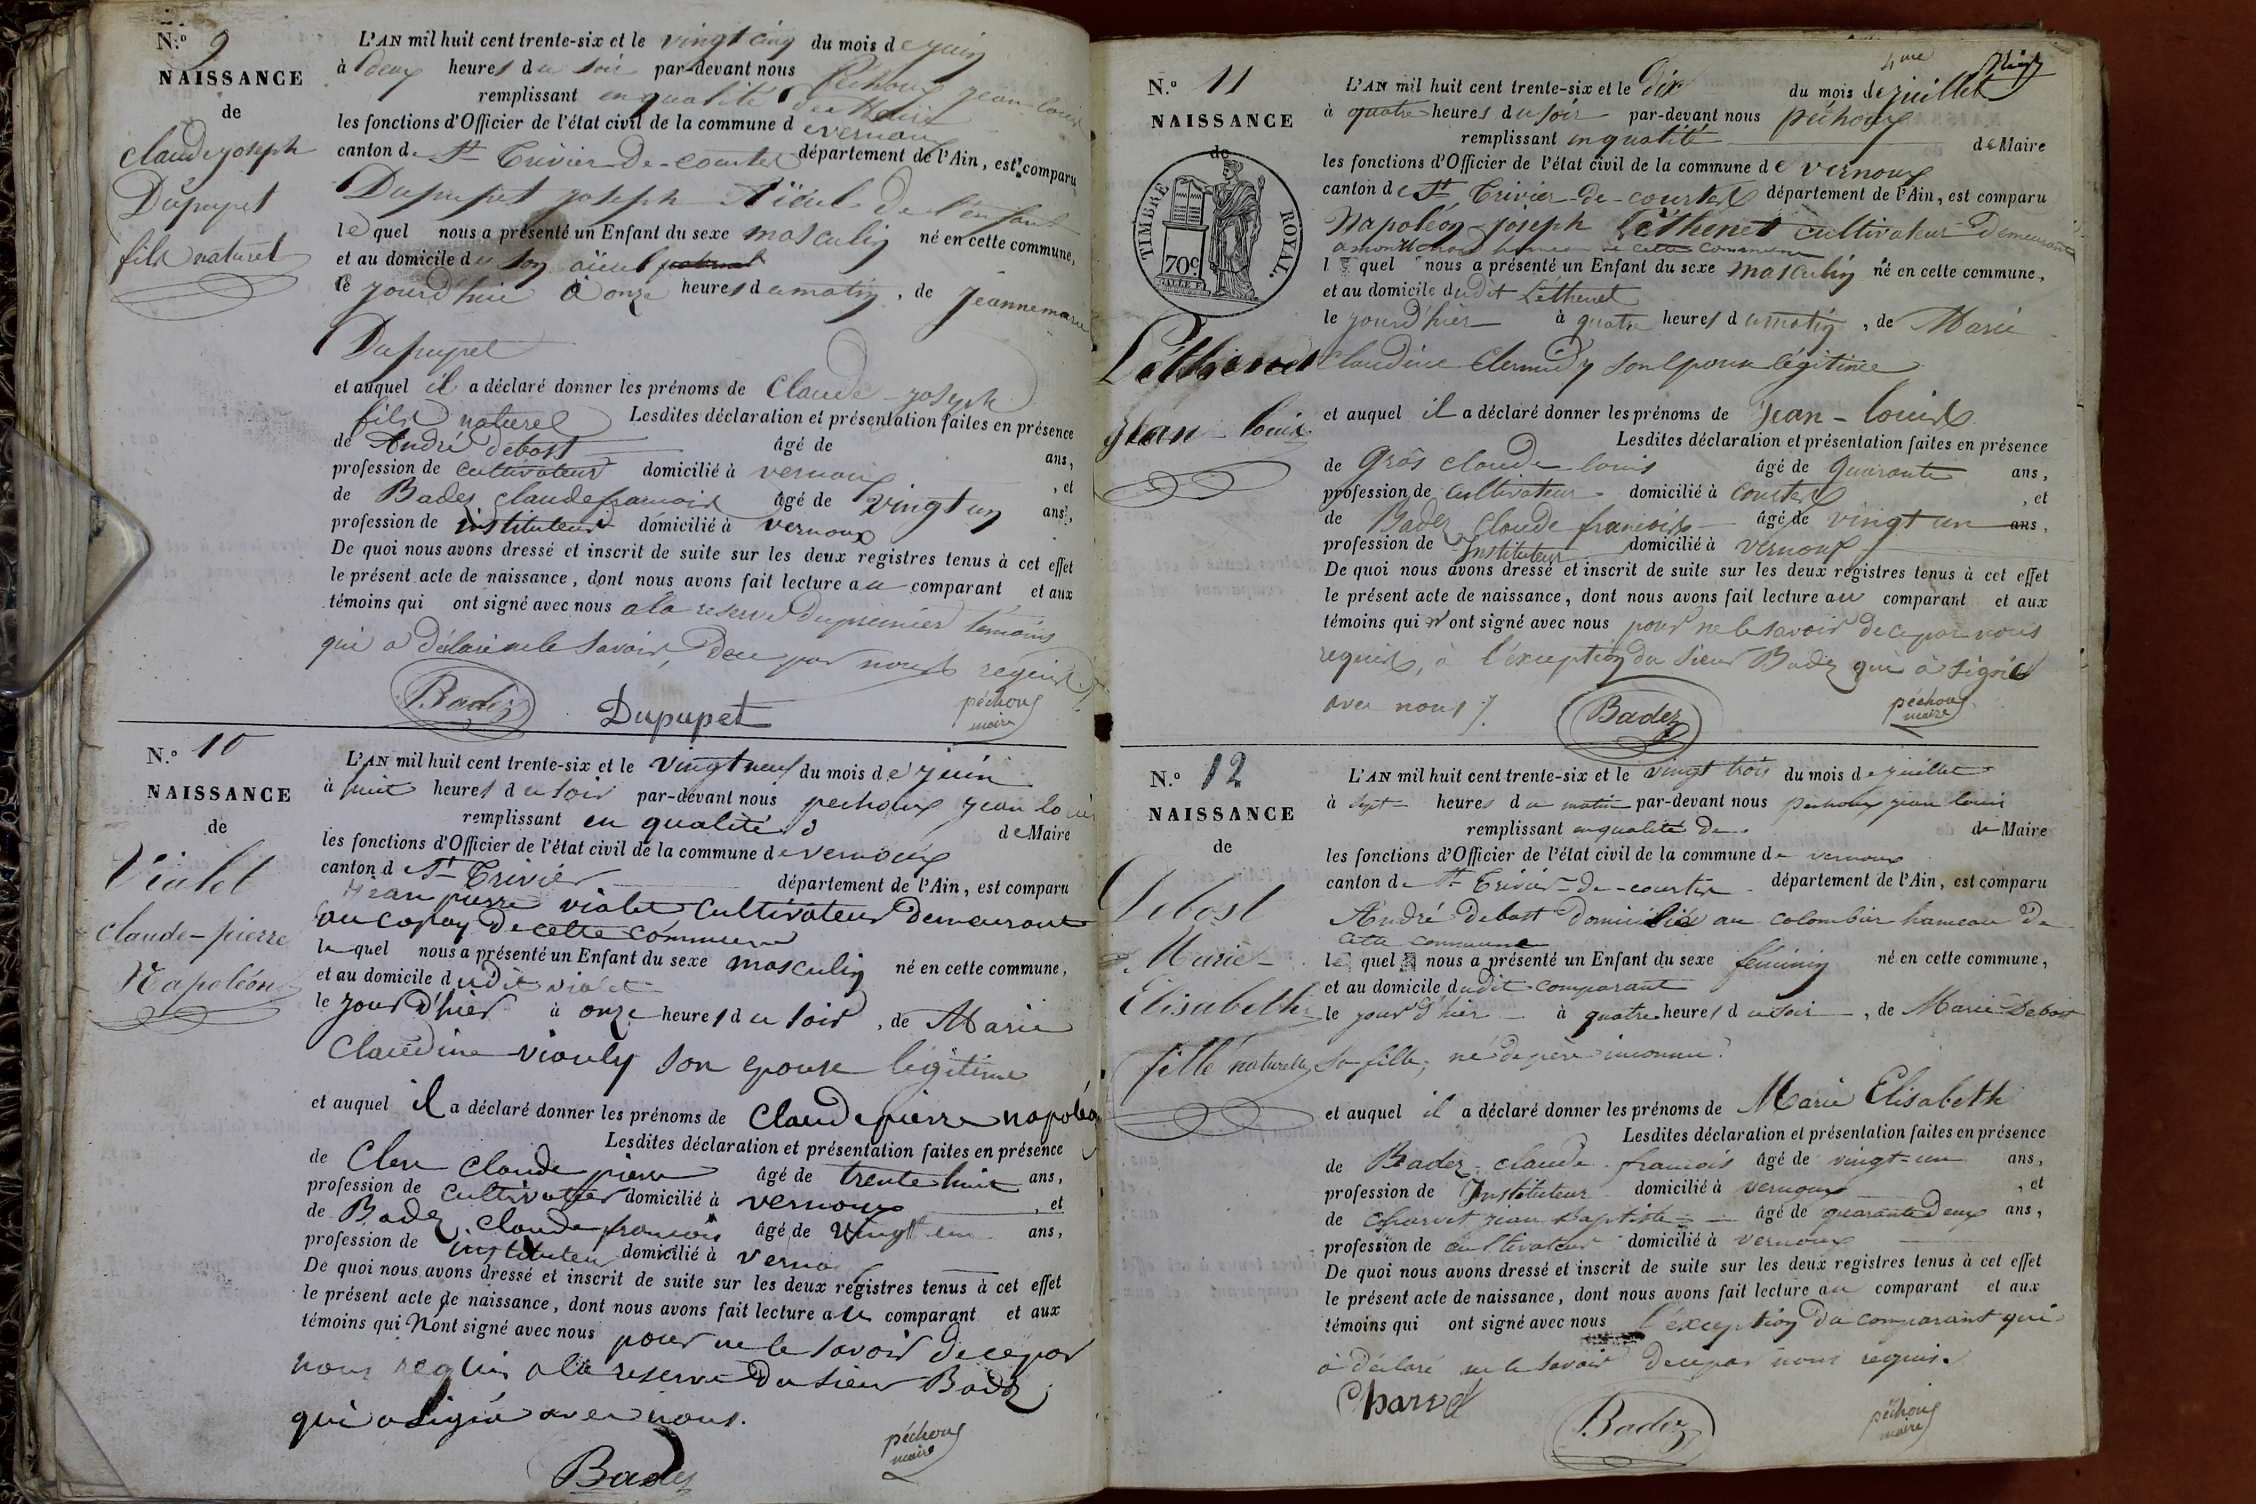 N.º 9
NAISSANCE
de
claude joseph
Dupupet
fils naturel
L'AN mil huit cent trente-six et le vingt cinq du mois de juin
à deux heures du soir par-devant nous Pechoux jean louis
remplissant en qualité de Maire
les fonctions d'Officier de l'état civil de la commune de vernoux
canton de St Trivier-de-courtes département de l'Ain, est comparu
Dupupet joseph Aïeul de l'enfant
lequel nous a présenté un Enfant du sexe masculin né en cette commune,
et au domicile de son aïeul paternel
le jourd'hui à onze heures du matin, de jeanne marie
Dupupet
et auquel il a déclaré donner les prénoms de Claude joseph
fils naturel Lesdites déclaration et présentation faites en présence
de André debost âgé de ans,
profession de cultivateur domicilié à vernoux, et
de Badez claude francois âgé de vingt un ans,
profession de instituteur domicilié à vernoux
De quoi nous avons dressé et inscrit de suite sur les deux registres tenus à cet effet
le présent acte de naissance, dont nous avons fait lecture au comparant et aux
témoins qui ont signé avec nous a la reserve du premier témoins
qui a déclaré ne le savoir, de ce par nous requis.
Badez Dupupet péchoux
maire
N.º 10
NAISSANCE
de
Violet
claude-pierre
Napoléon
L'AN mil huit cent trente-six et le vingt neuf du mois de juin
à huit heures du soir par-devant nous pechoux jean louis
remplissant en qualité de Maire
les fonctions d'Officier de l'état civil de la commune de vernoux
canton de St Trivier département de l'Ain, est comparu
jean pierre violet cultivateur demeurant
au de cette commune
lequel nous a présenté un Enfant du sexe masculin né en cette commune,
et au domicile dudit violet
le jour d'hier à onze heures du soir, de Marie
Claudine viouly son epouse légitime
et auquel il a déclaré donner les prénoms de Claude pierre napoléon
Lesdites déclaration et présentation faites en présence
de Clerc Claude pierre âgé de trente huit ans,
profession de cultivateur domicilié à vernoux, et
de Badez claude francois âgé de vingt un ans,
profession de instituteur domicilié à vernoux
De quoi nous avons dressé et inscrit de suite sur les deux registres tenus à cet effet
le présent acte de naissance, dont nous avons fait lecture au comparant et aux
témoins qui N'ont signé avec nous pour ne le savoir de ce par
nous requis a la reserve du sieur Badez
qui a signé avec nous.
Badez péchoux
maire
4me
N.º 11
NAISSANCE
de
TIMBRE ROYAL.
70c
Léthenet
jean-louis
L'AN mil huit cent trente-six et le dix du mois de juillet
à quatre heures du soir par-devant nous péchoux
remplissant en qualité de Maire
les fonctions d'Officier de l'état civil de la commune de vernoux
canton de St Trivier-de-courtes département de l'Ain, est comparu
Napoléon joseph Léthenet cultivateur demeurant
hameau de cette commune
lequel nous a présenté un Enfant du sexe masculin né en cette commune,
et au domicile dudit Léthenet
le jourd'hier à quatre heures du matin, de Marie
Claudine Clermidy son epouse légitime
et auquel il a déclaré donner les prénoms de jean-louis
Lesdites déclaration et présentation faites en présence
de Gros claude louis âgé de quarante ans,
profession de cultivateur domicilié à courtes, et
de Badez Claude francois âgé de vingt un ans,
profession de Instituteur domicilié à vernoux
De quoi nous avons dressé et inscrit de suite sur les deux registres tenus à cet effet
le présent acte de naissance, dont nous avons fait lecture au comparant et aux
témoins qui n'ont signé avec nous pour ne le savoir de ce par nous
requis, à l'exception du sieur Badez qui a signé
avec nous
Badez péchoux
maire
N.º 12
NAISSANCE
de
Debost
Marie-
Elisabeth
fille naturelle
L'AN mil huit cent trente-six et le vingt trois du mois de juillet
à sept heures du matin par-devant nous pechoux jean louis
remplissant en qualité de de Maire
les fonctions d'Officier de l'état civil de la commune de vernoux
canton de St Trivier-de-courtes département de l'Ain, est comparu
André debost domicilié au colombier hameau de
cette commune
lequel nous a présenté un Enfant du sexe féminin né en cette commune,
et au domicile dudit comparant
le jour d'hier à quatre heures du soir, de Marie Debost
sa fille, né de père inconnu.
et auquel il a déclaré donner les prénoms de Marie Elisabeth
Lesdites déclaration et présentation faites en présence
de Badez claude francois âgé de vingt-un ans,
profession de Instituteur domicilié à vernoux, et
de Charvet jean Baptiste âgé de quarante deux ans,
profession de cultivateur domicilié à vernoux
De quoi nous avons dressé et inscrit de suite sur les deux registres tenus à cet effet
le présent acte de naissance, dont nous avons fait lecture au comparant et aux
témoins qui ont signé avec nous l'exception du comparant qui
a déclaré ne le savoir de ce par nous requis.
Charvet Badez péchoux
maire